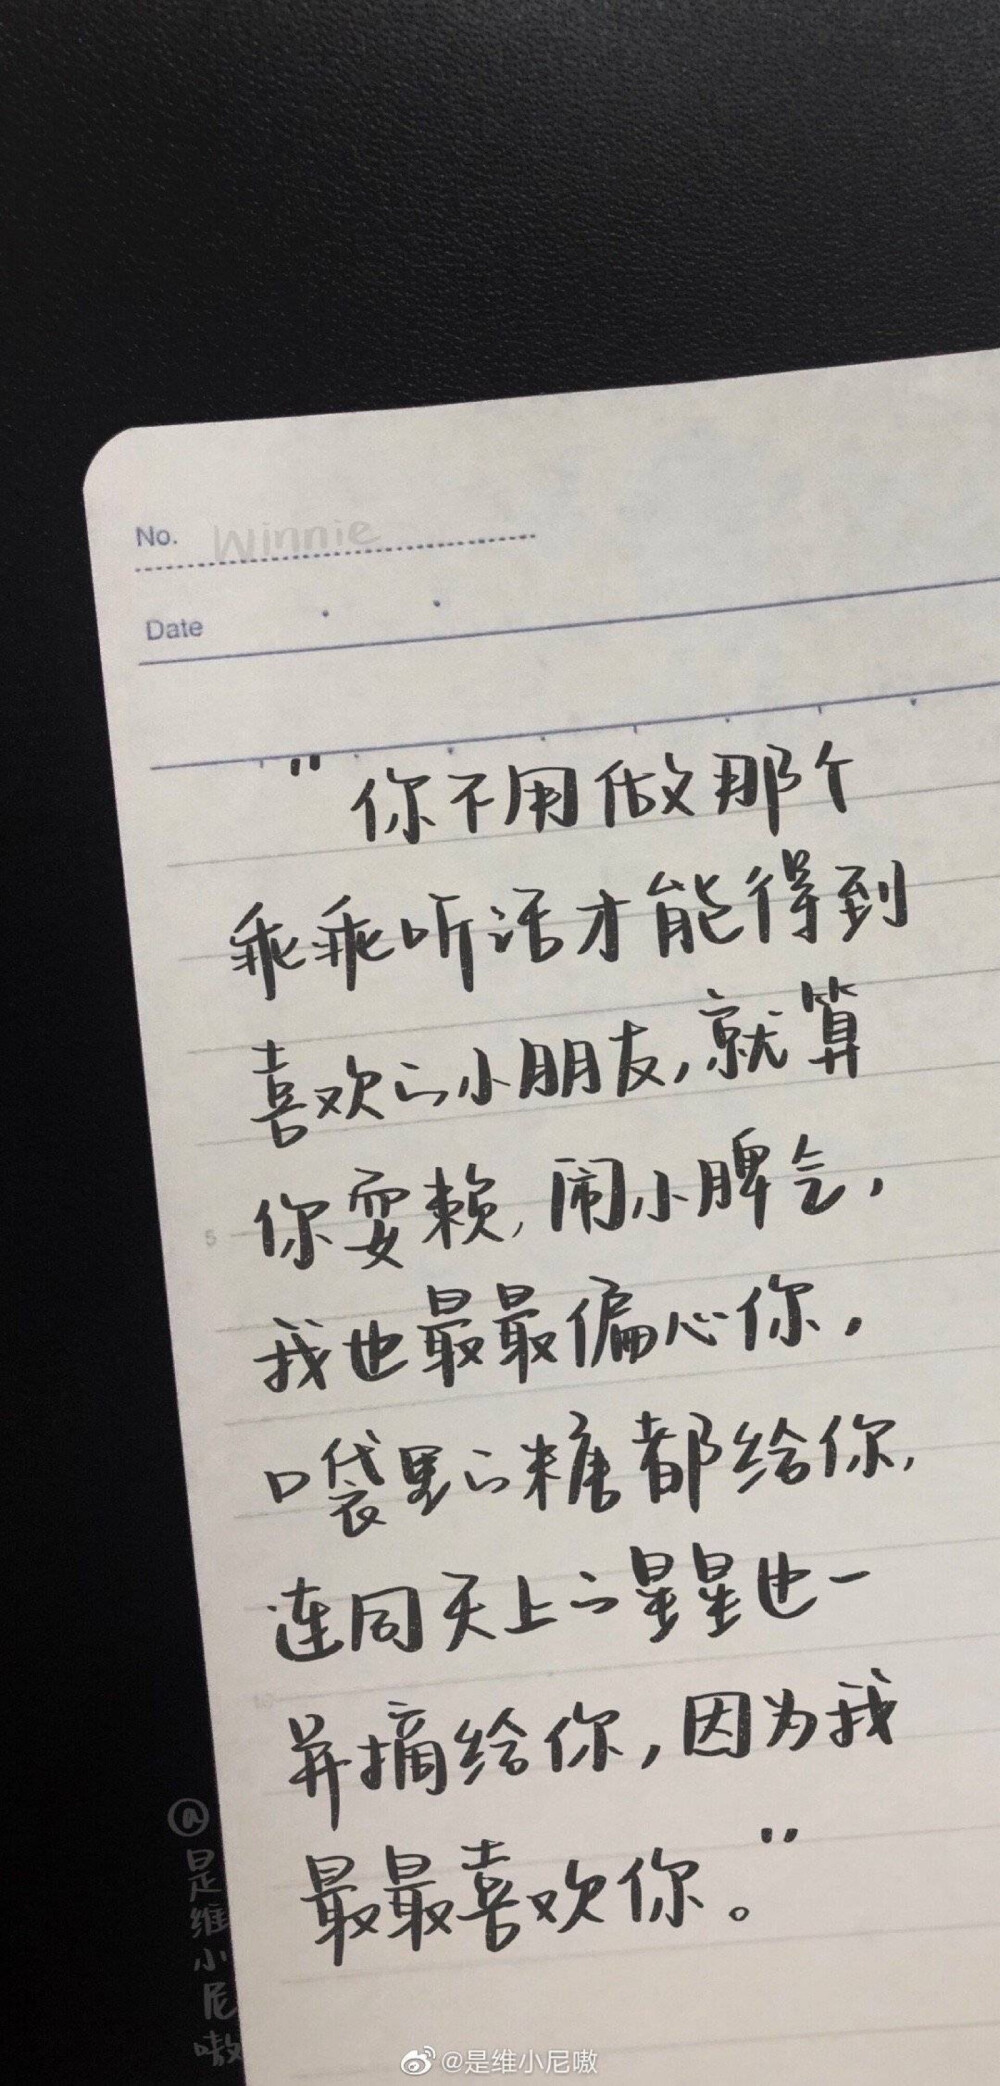 No. Winnie
Date
"你不用做那个
乖乖听话才能得到
喜欢的小朋友,就算
你耍赖,闹小脾气,
我也最最偏心你.
口袋里的糖都给你,
连同天上的星星也一
并摘给你,因为我
最最喜欢你。"
5
10
@是维小尼嗷
@是维小尼嗷